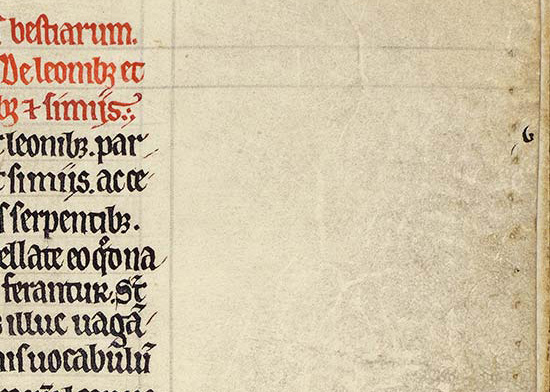 bestiarum.
De leonibꝫ et
bꝫ ⁊ simijs.
leonibꝫ. par
simiis. acce
serpentibꝫ.
ellate eo qͦd na
ferantur. Sͭ
illuc uagā
uocabulū
6